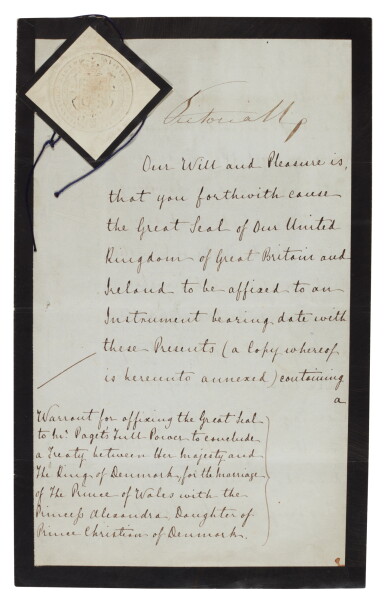 Victoria R
Our Will and Pleasure is,
that you forthwith cause
the Great Seal of Our United
Kingdom of Great Britain and
Ireland to be affixed to an
Instrument bearing date with
these Presents (a Copy whereof
is hereunto annexed) containing
a
Warrant for affixing the Great Seal
to Mr. Paget's Full Power to conclude
a Treaty between Her Majesty and
The King of Denmark, for the marriage
of The Prince of Wales with the
Princess Alexandra, Daughter of
Prince Christian of Denmark.